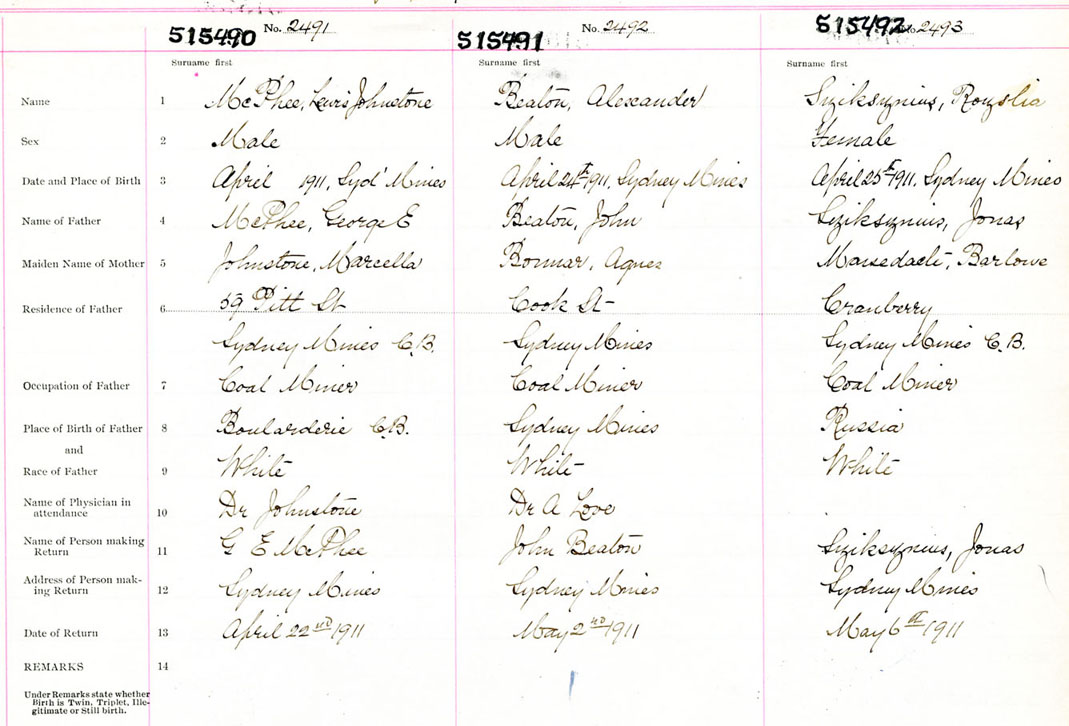 515490 No. 2491 515491 No. 2492 515492 No. 2493
Surname first Surname first Surname first
Name 1 McPhee, Lewis Johnstone Beaton, Alexander Sziksznius, Rozslia
Sex 2 Male Male Female
Date and Place of Birth 3 April 1911, Syd' Mines April 24th 1911, Sydney Mines April 25th 1911, Sydney Mines
Name of Father 4 McPhee, George E Beaton, John Sziksznius, Jonas
Maiden Name of Mother 5 Johnstone, Marcella Bonnar, Agnes Barlowe
Residence of Father 6 59 Pitt St Cook St Cranberry
Sydney Mines C.B. Sydney Mines Sydney Mines C.B.
Occupation of Father 7 Coal Miner Coal Miner Coal Miner
Place of Birth of Father 8 Boularderie C.B. Sydney Mines Russia
and
Race of Father 9 White White White
Name of Physician in
attendance 10 Dr Johnstone Dr A Love
Name of Person making
Return 11 G E McPhee John Beaton Sziksznius, Jonas
Address of Person mak-
ing Return 12 Sydney Mines Sydney Mines Sydney Mines
Date of Return 13 April 22nd 1911 May 2nd 1911 May 6th 1911
REMARKS 14
Under Remarks state whether
Birth is Twin, Triplet, Ille-
gitimate or Still birth.